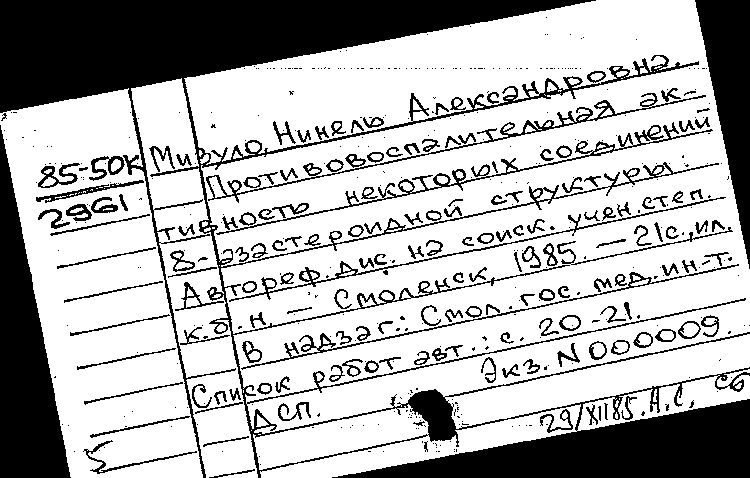 85-50К
2961
Мизуло, Нинель Александровна.
Противовоспалительная ак-
тивность некоторых соединений
8-азастероидной структуры:
Автореф. дис. на соиск. учен. степ.
к.б.н. — Смоленск, 1985. — 21с., ил.
В надзаг.: Смол. гос. мед. ин-т.
Список работ авт.: с. 20-21.
Экз. N000009
ДСП.
29/XII85. А.С.
5